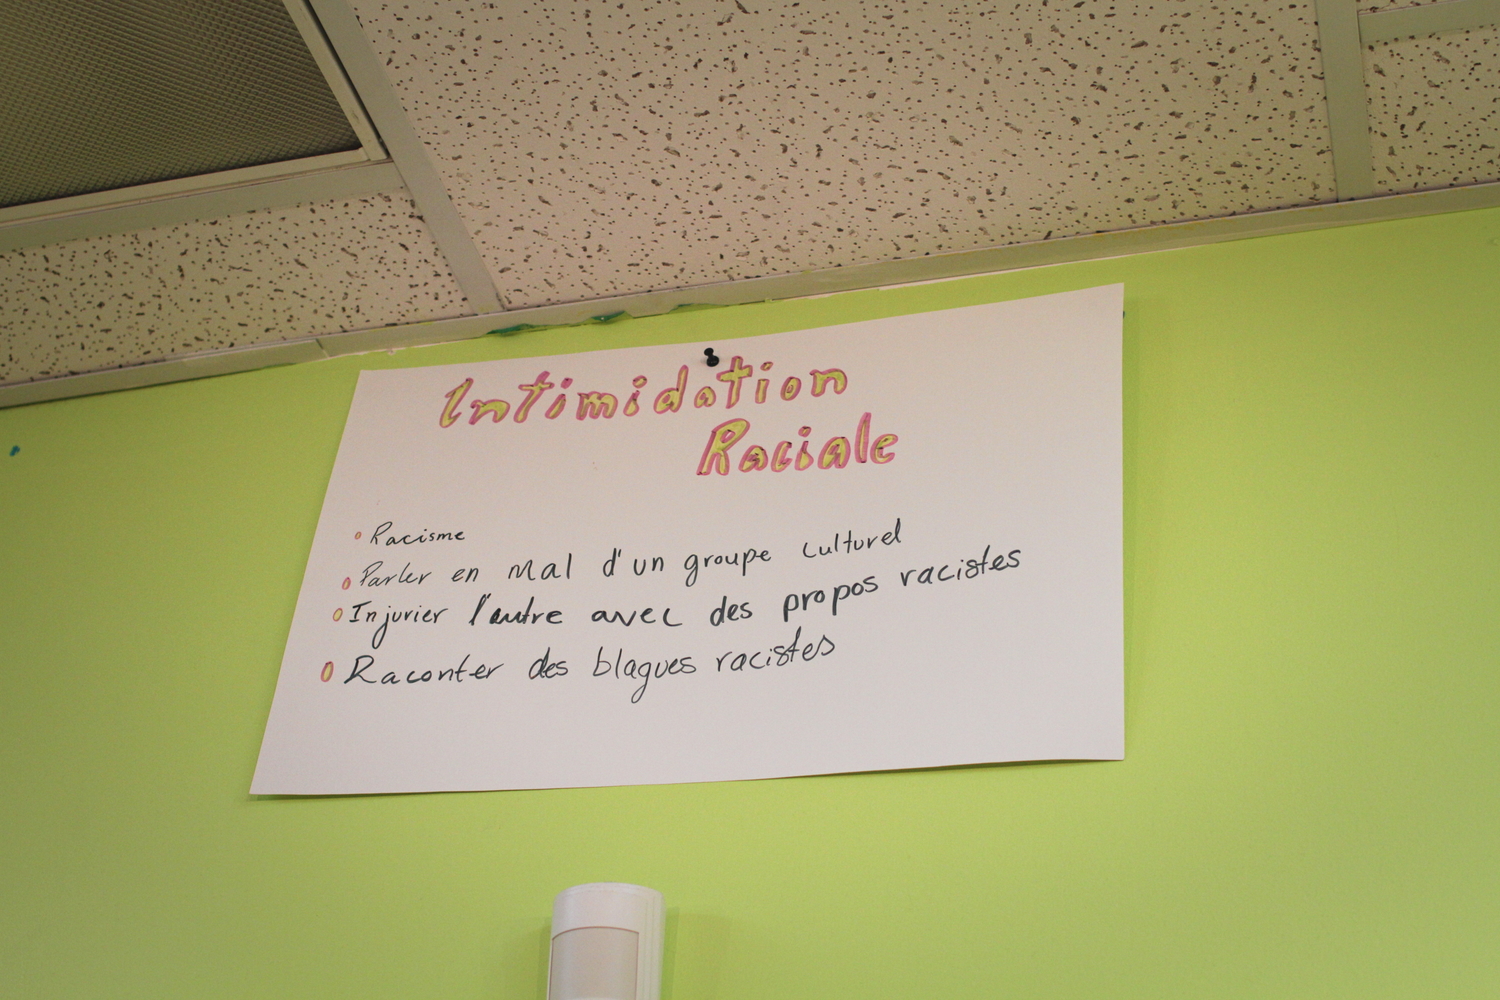 Intimidation
Raciale
Racisme
Parler en mal d'un groupe culturel
Injurier l'autre avec des propos racistes
Raconter des blagues racistes